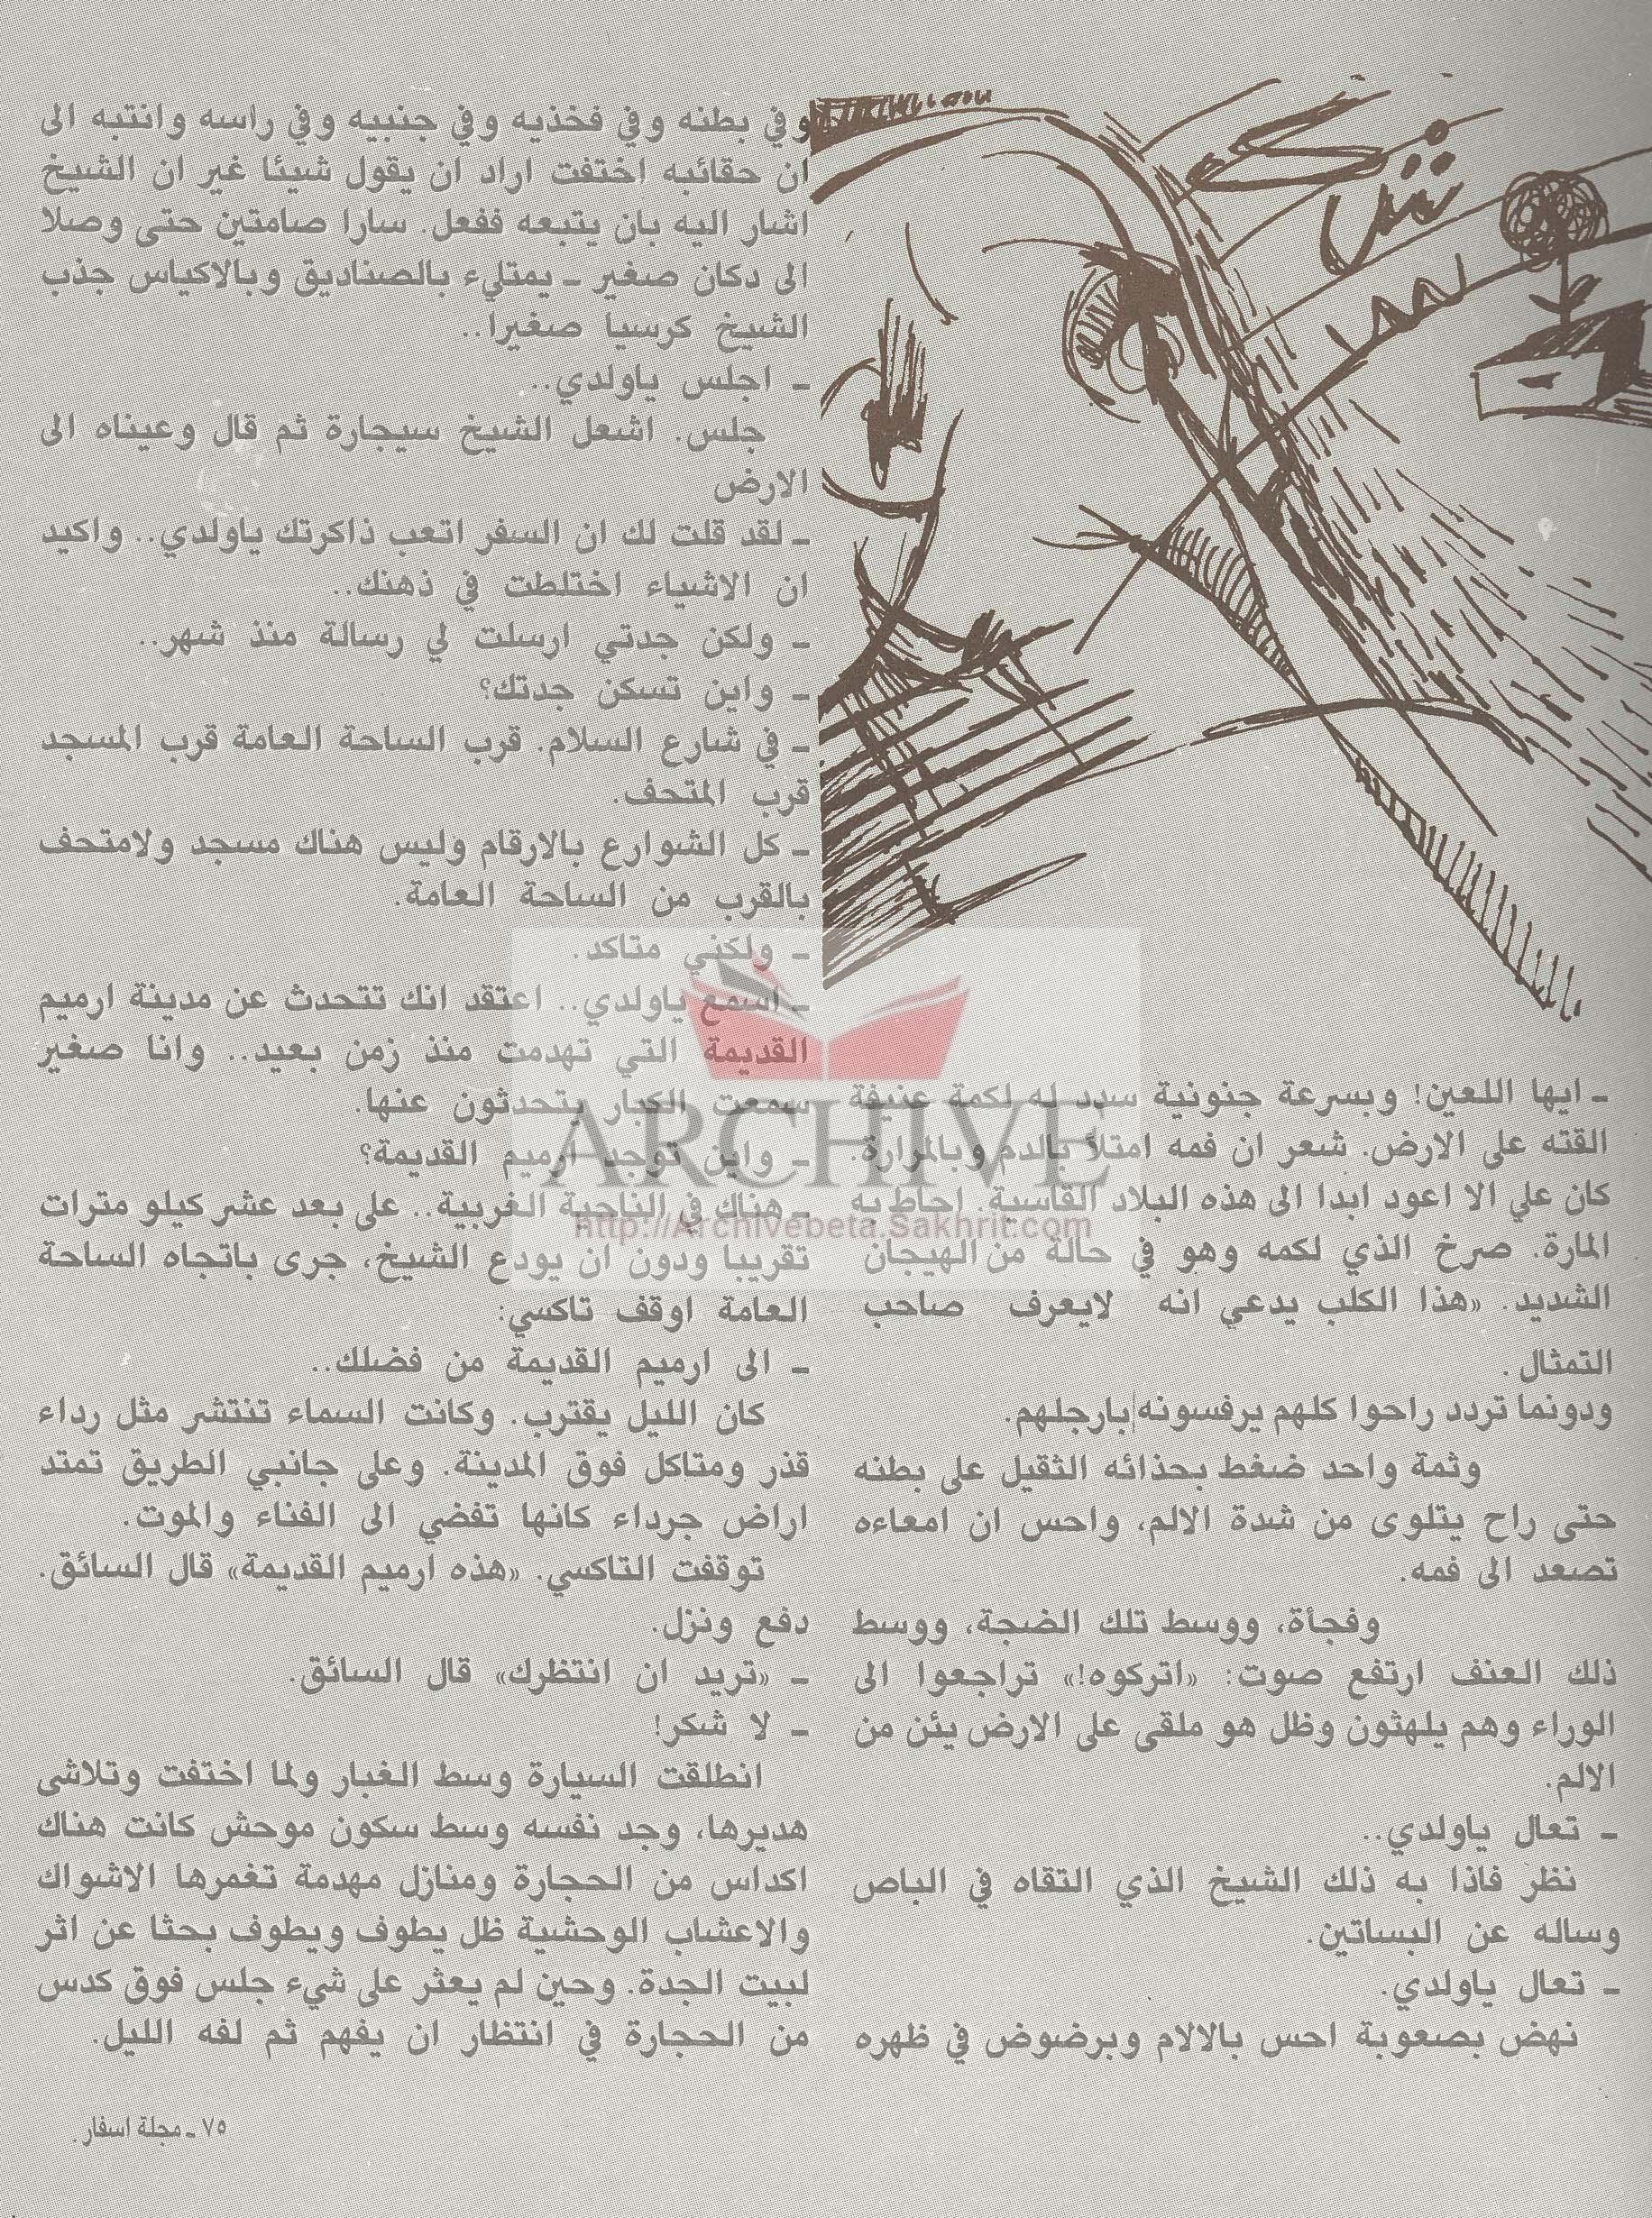 ـ ايها اللعين! وبسرعة جنونية سدد له لكمة عنيفة
القته على الارض. شعر ان فمه امتلأ بالدم وبالمرارة.
كان علي الا اعود ابدا الى هذه البلاد القاسية. احاط به
المارة. صرخ الذي لكمه وهو في حالة من الهيجان
الشديد. «هذا الكلب يدعي انه لايعرف صاحب
التمثال.
ودونما تردد راحوا كلهم يرفسونه بارجلهم.
وثمة واحد ضغط بحذائه الثقيل على بطنه
حتى راح يتلوى من شدة الالم، واحس ان امعاءه
تصعد الى فمه.
وفجأة، ووسط تلك الضجة، ووسط
ذلك العنف ارتفع صوت: «اتركوه!» تراجعوا الى
الوراء وهم يلهثون وظل هو ملقى على الارض يئن من
الالم.
ـ تعال ياولدي..
نظر فاذا به ذلك الشيخ الذي التقاه في الباص
وساله عن البساتين.
ـ تعال ياولدي.
نهض بصعوبة احس بالالام وبرضوض في ظهره
وفي بطنه وفي فخذيه وفي جنبيه وفي راسه وانتبه الى
ان حقائبه اختفت اراد ان يقول شيئا غير ان الشيخ
اشار اليه بان يتبعه ففعل. سارا صامتين حتى وصلا
الى دكان صغير ـ يمتليء بالصناديق وبالاكياس جذب
الشيخ كرسيا صغيرا..
ـ اجلس ياولدي..
جلس. اشعل الشيخ سيجارة ثم قال وعيناه الى
الارض
ـ لقد قلت لك ان السفر اتعب ذاكرتك ياولدي.. واكيد
ان الاشياء اختلطت في ذهنك..
ـ ولكن جدتي ارسلت لي رسالة منذ شهر..
ـ واين تسكن جدتك؟
ـ في شارع السلام. قرب الساحة العامة قرب المسجد
قرب المتحف.
ـ كل الشوارع بالارقام وليس هناك مسجد ولامتحف
بالقرب من الساحة العامة.
ـ ولكني متاكد.
ـ اسمع ياولدي.. اعتقد انك تتحدث عن مدينة ارميم
القديمة التي تهدمت منذ زمن بعيد.. وانا صغير
سمعت الكبار يتحدثون عنها.
ـ واين توجد ارميم القديمة؟
ـ هناك في الناحية الغربية.. على بعد عشر كيلو مترات
تقريبا ودون ان يودع الشيخ، جرى باتجاه الساحة
العامة اوقف تاكسي:
ـ الى ارميم القديمة من فضلك..
كان الليل يقترب. وكانت السماء تنتشر مثل رداء
قذر ومتاكل فوق المدينة. وعلى جانبي الطريق تمتد
اراض جرداء كانها تفضي الى الفناء والموت.
توقفت التاكسي. «هذه ارميم القديمة» قال السائق.
دفع ونزل.
ـ «تريد ان انتظرك» قال السائق.
ـ لا شكر!
انطلقت السيارة وسط الغبار ولما اختفت وتلاشى
هديرها، وجد نفسه وسط سكون موحش كانت هناك
اكداس من الحجارة ومنازل مهدمة تغمرها الاشواك
والاعشاب الوحشية ظل يطوف ويطوف بحثا عن اثر
لبيت الجدة. وحين لم يعثر على شيء جلس فوق كدس
من الحجارة في انتظار ان يفهم ثم لفه الليل.
٧٥ ـ مجلة اسفار.
ARCHIVE
http://Archivebeta.Sakhrit.com